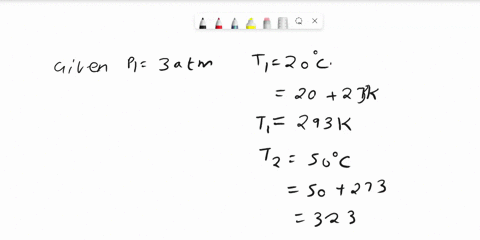 Given P₁ = 3 atm
T₁ = 20°C.
= 20 + 273K
T₁ = 293K
T₂ = 50°C
= 50 + 273
= 323